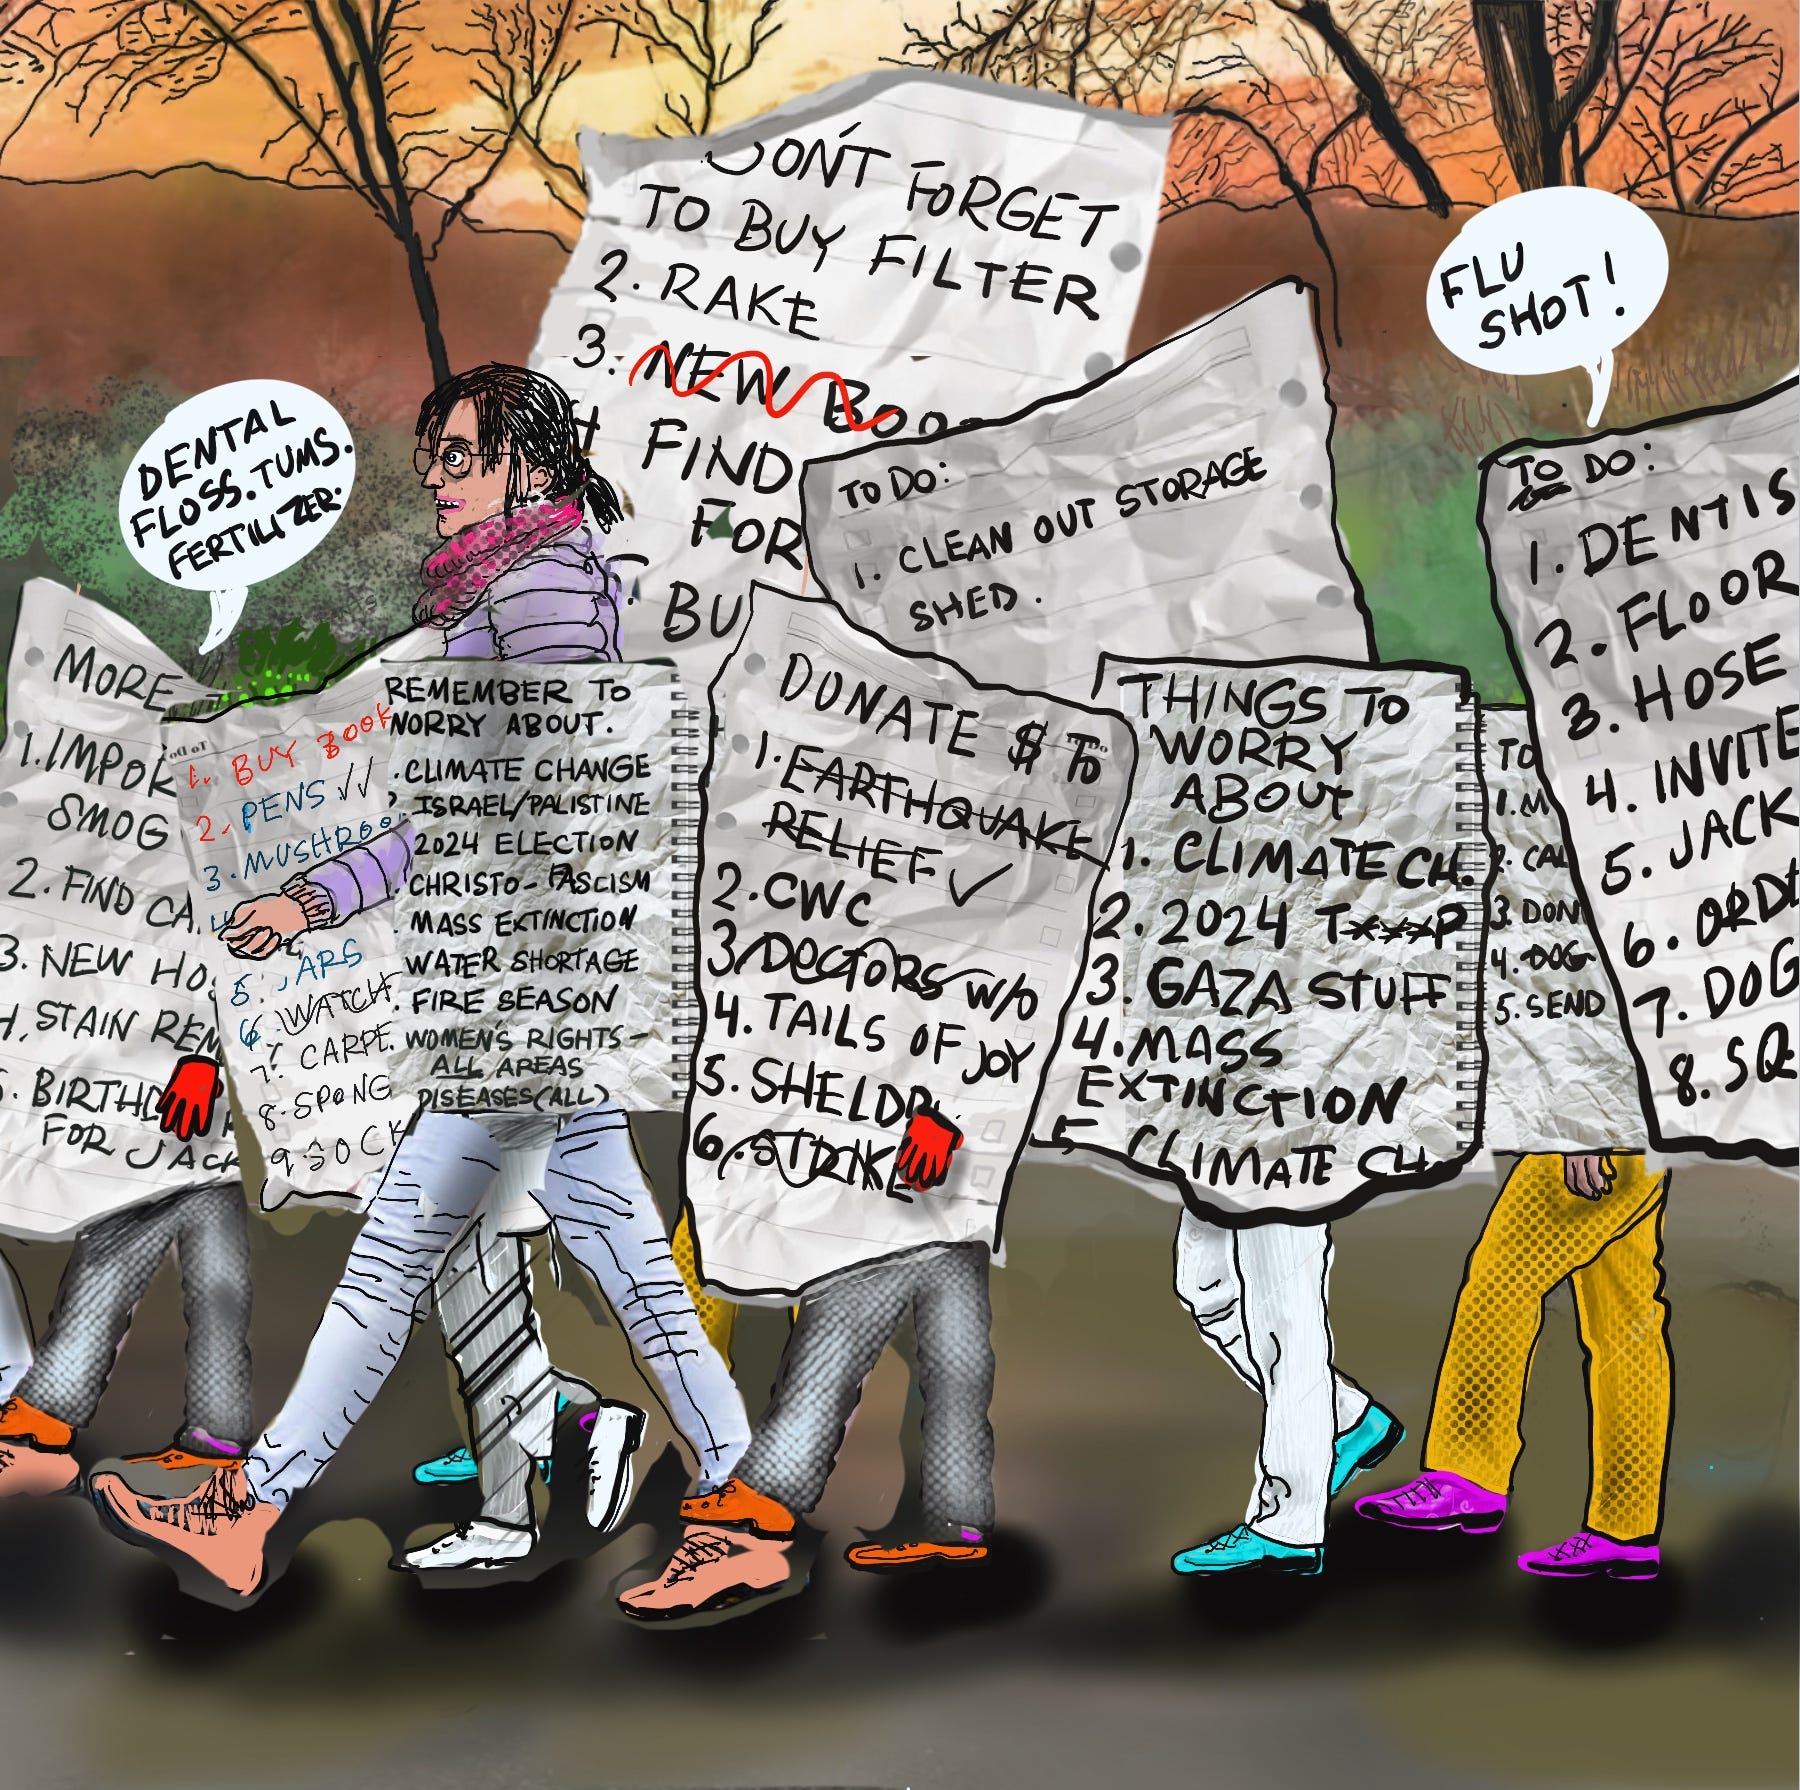 DON'T FORGET
TO BUY FILTER
2. RAKE
3. NEW BOO
FIND
FOR
BU
FLU
SHOT!
DENTAL
FLOSS. TUMS.
FERTILIZER.
TO DO:
1. CLEAN OUT STORAGE
SHED.
TO DO:
1. DENTIS
2. FLOOR
3. HOSE
4. INVITE
5. JACK
6. ORDE
7. DOG
8. SQ
MORE
1. IMPOR
SMOG
2. FIND CA
3. NEW HO
4. STAIN REM
5. BIRTHD
FOR JACK
To Do
1. BUY BOOK
2. PENS ✓✓
3. MUSHROO
4.
5. JARS
6. WATCH
7. CARPE
8. SPONG
9. SOCK
REMEMBER TO
WORRY ABOUT.
. CLIMATE CHANGE
ISRAEL/PALISTINE
2024 ELECTION
. CHRISTO-FASCISM
. MASS EXTINCTION
WATER SHORTAGE
. FIRE SEASON
. WOMEN'S RIGHTS-
ALL AREAS
DISEASES (ALL)
DONATE $ TO
1. EARTHQUAKE
RELIEF ✓
2. CWC
3. DOCTORS W/O
4. TAILS OF JOY
5. SHELD
6. STRIKE
THINGS TO
WORRY
ABOUT
1. CLIMATE CH.
2. 2024 TXXXP
3. GAZA STUFF
4. MASS
EXTINCTION
5 CLIMATE CH
TO
1. M
2. CAL
3. DON
4. DOG
5. SEND